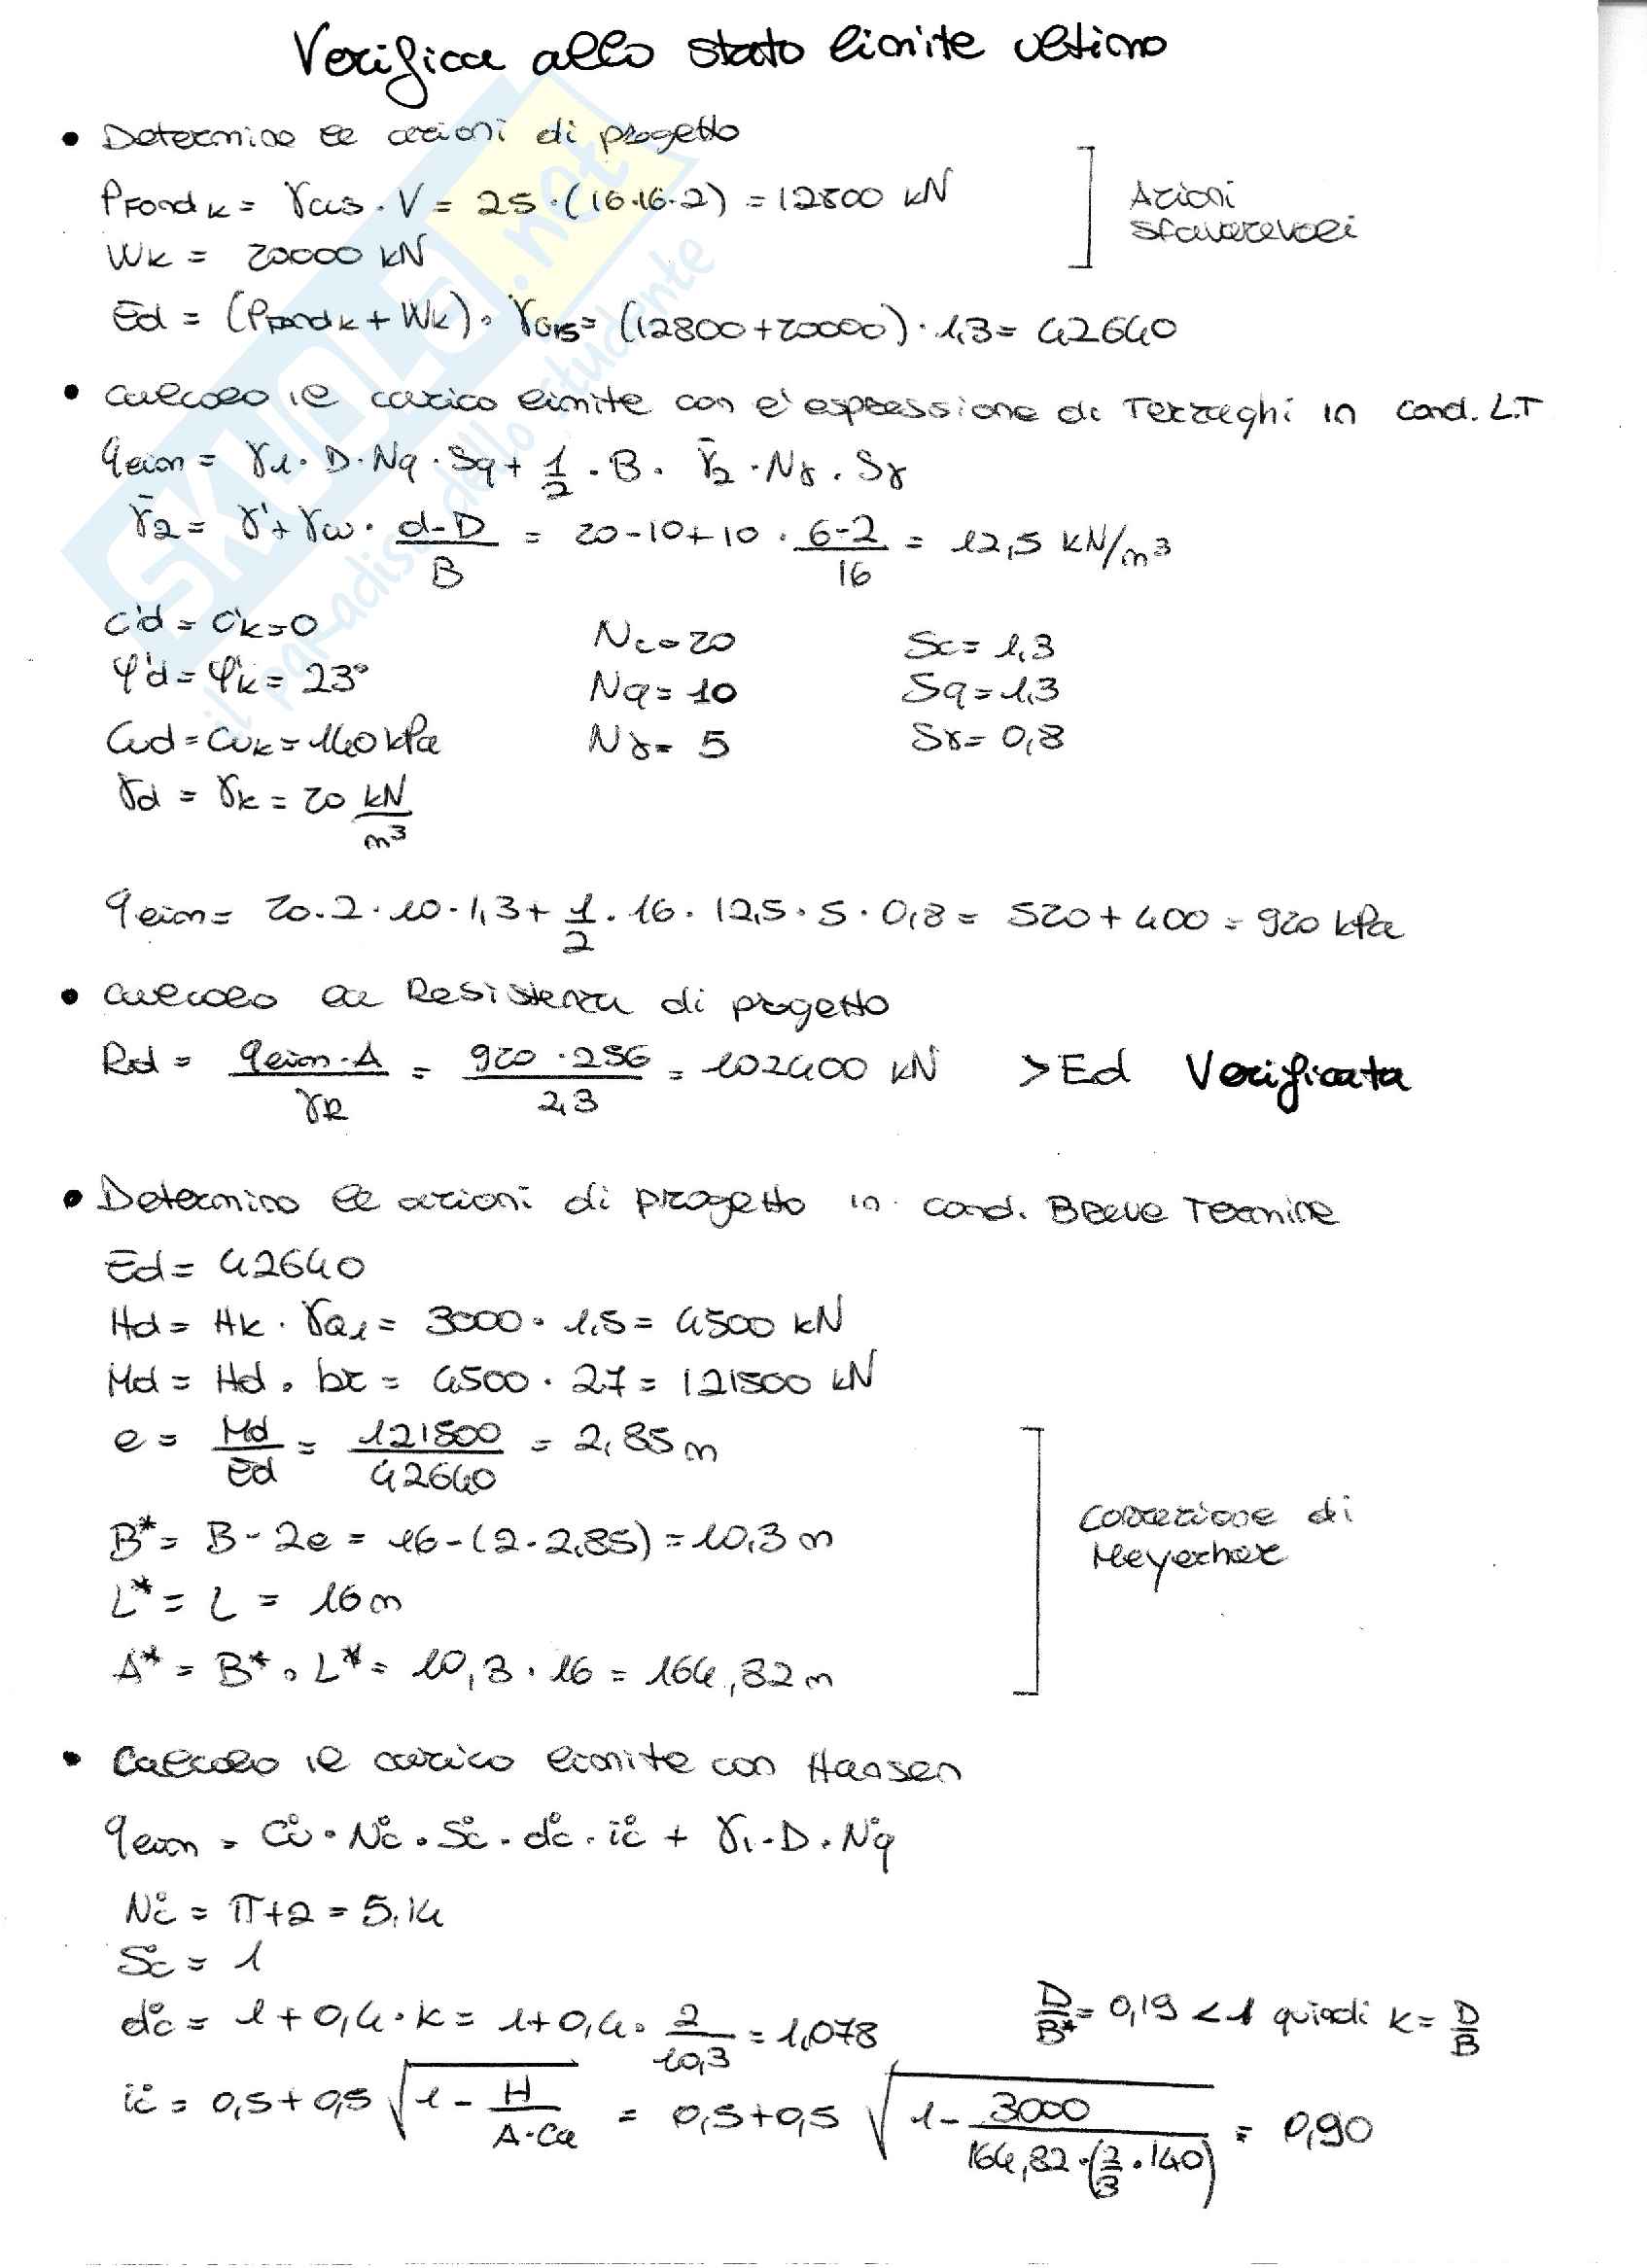 Verifica allo stato limite ultimo
• Determino le azioni di progetto
PFond k = γcls · V = 25 · (16·16·2) = 12800 kN
Wk = 20000 kN
Azioni
sfavorevoli
Ed = (PFond k + Wk) · γG1s = (12800+20000) · 1,3 = 42640
• Calcolo il carico limite con l'espressione di Terzaghi in cond. L.T
qlim = γ1 · D · Nq · Sq + 1/2 · B · γ̄2 · Nγ · Sγ
γ̄2 = γ' + γw · (d-D)/B = 20-10+10 · (6-2)/16 = 12,5 kN/m³
c'd = c'k = 0    Nc = 20    Sc = 1,3
φ'd = φ'k = 23°    Nq = 10    Sq = 1,3
Cud = Cuk = 140 kPa    Nγ = 5    Sγ = 0,8
γd = γk = 20 kN/m³
qlim = 20·2·10·1,3 + 1/2 · 16 · 12,5 · 5 · 0,8 = 520 + 400 = 920 kPa
• Calcolo la Resistenza di progetto
Rd = qlim·A/γR = 920·256/2,3 = 102400 kN > Ed Verificata
• Determino le azioni di progetto in cond. Breve Termine
Ed = 42640
Hd = Hk · γQ1 = 3000 · 1,5 = 4500 kN
Md = Hd · br = 4500 · 27 = 121500 kN
e = Md/Ed = 121500/42640 = 2,85 m
B* = B - 2e = 16-(2·2,85) = 10,3 m
Correzione di
Meyerhof
L* = L = 16 m
A* = B* · L* = 10,3 · 16 = 164,82 m
• Calcolo il carico limite con Hansen
qlim = Cu · Nc° · Sc° · dc° · ic° + γ1 · D · Nq°
Nc° = π+2 = 5,14
Sc° = 1
dc° = 1+0,4·k = 1+0,4 · 2/10,3 = 1,078    D/B* = 0,19 < 1 quindi k = D/B
ic° = 0,5+0,5 √(1 - H/(A·Ca)) = 0,5+0,5 √(1 - 3000/(164,82·(2/3·140))) = 0,90
SKUOLA.net
il paradiso dello studente